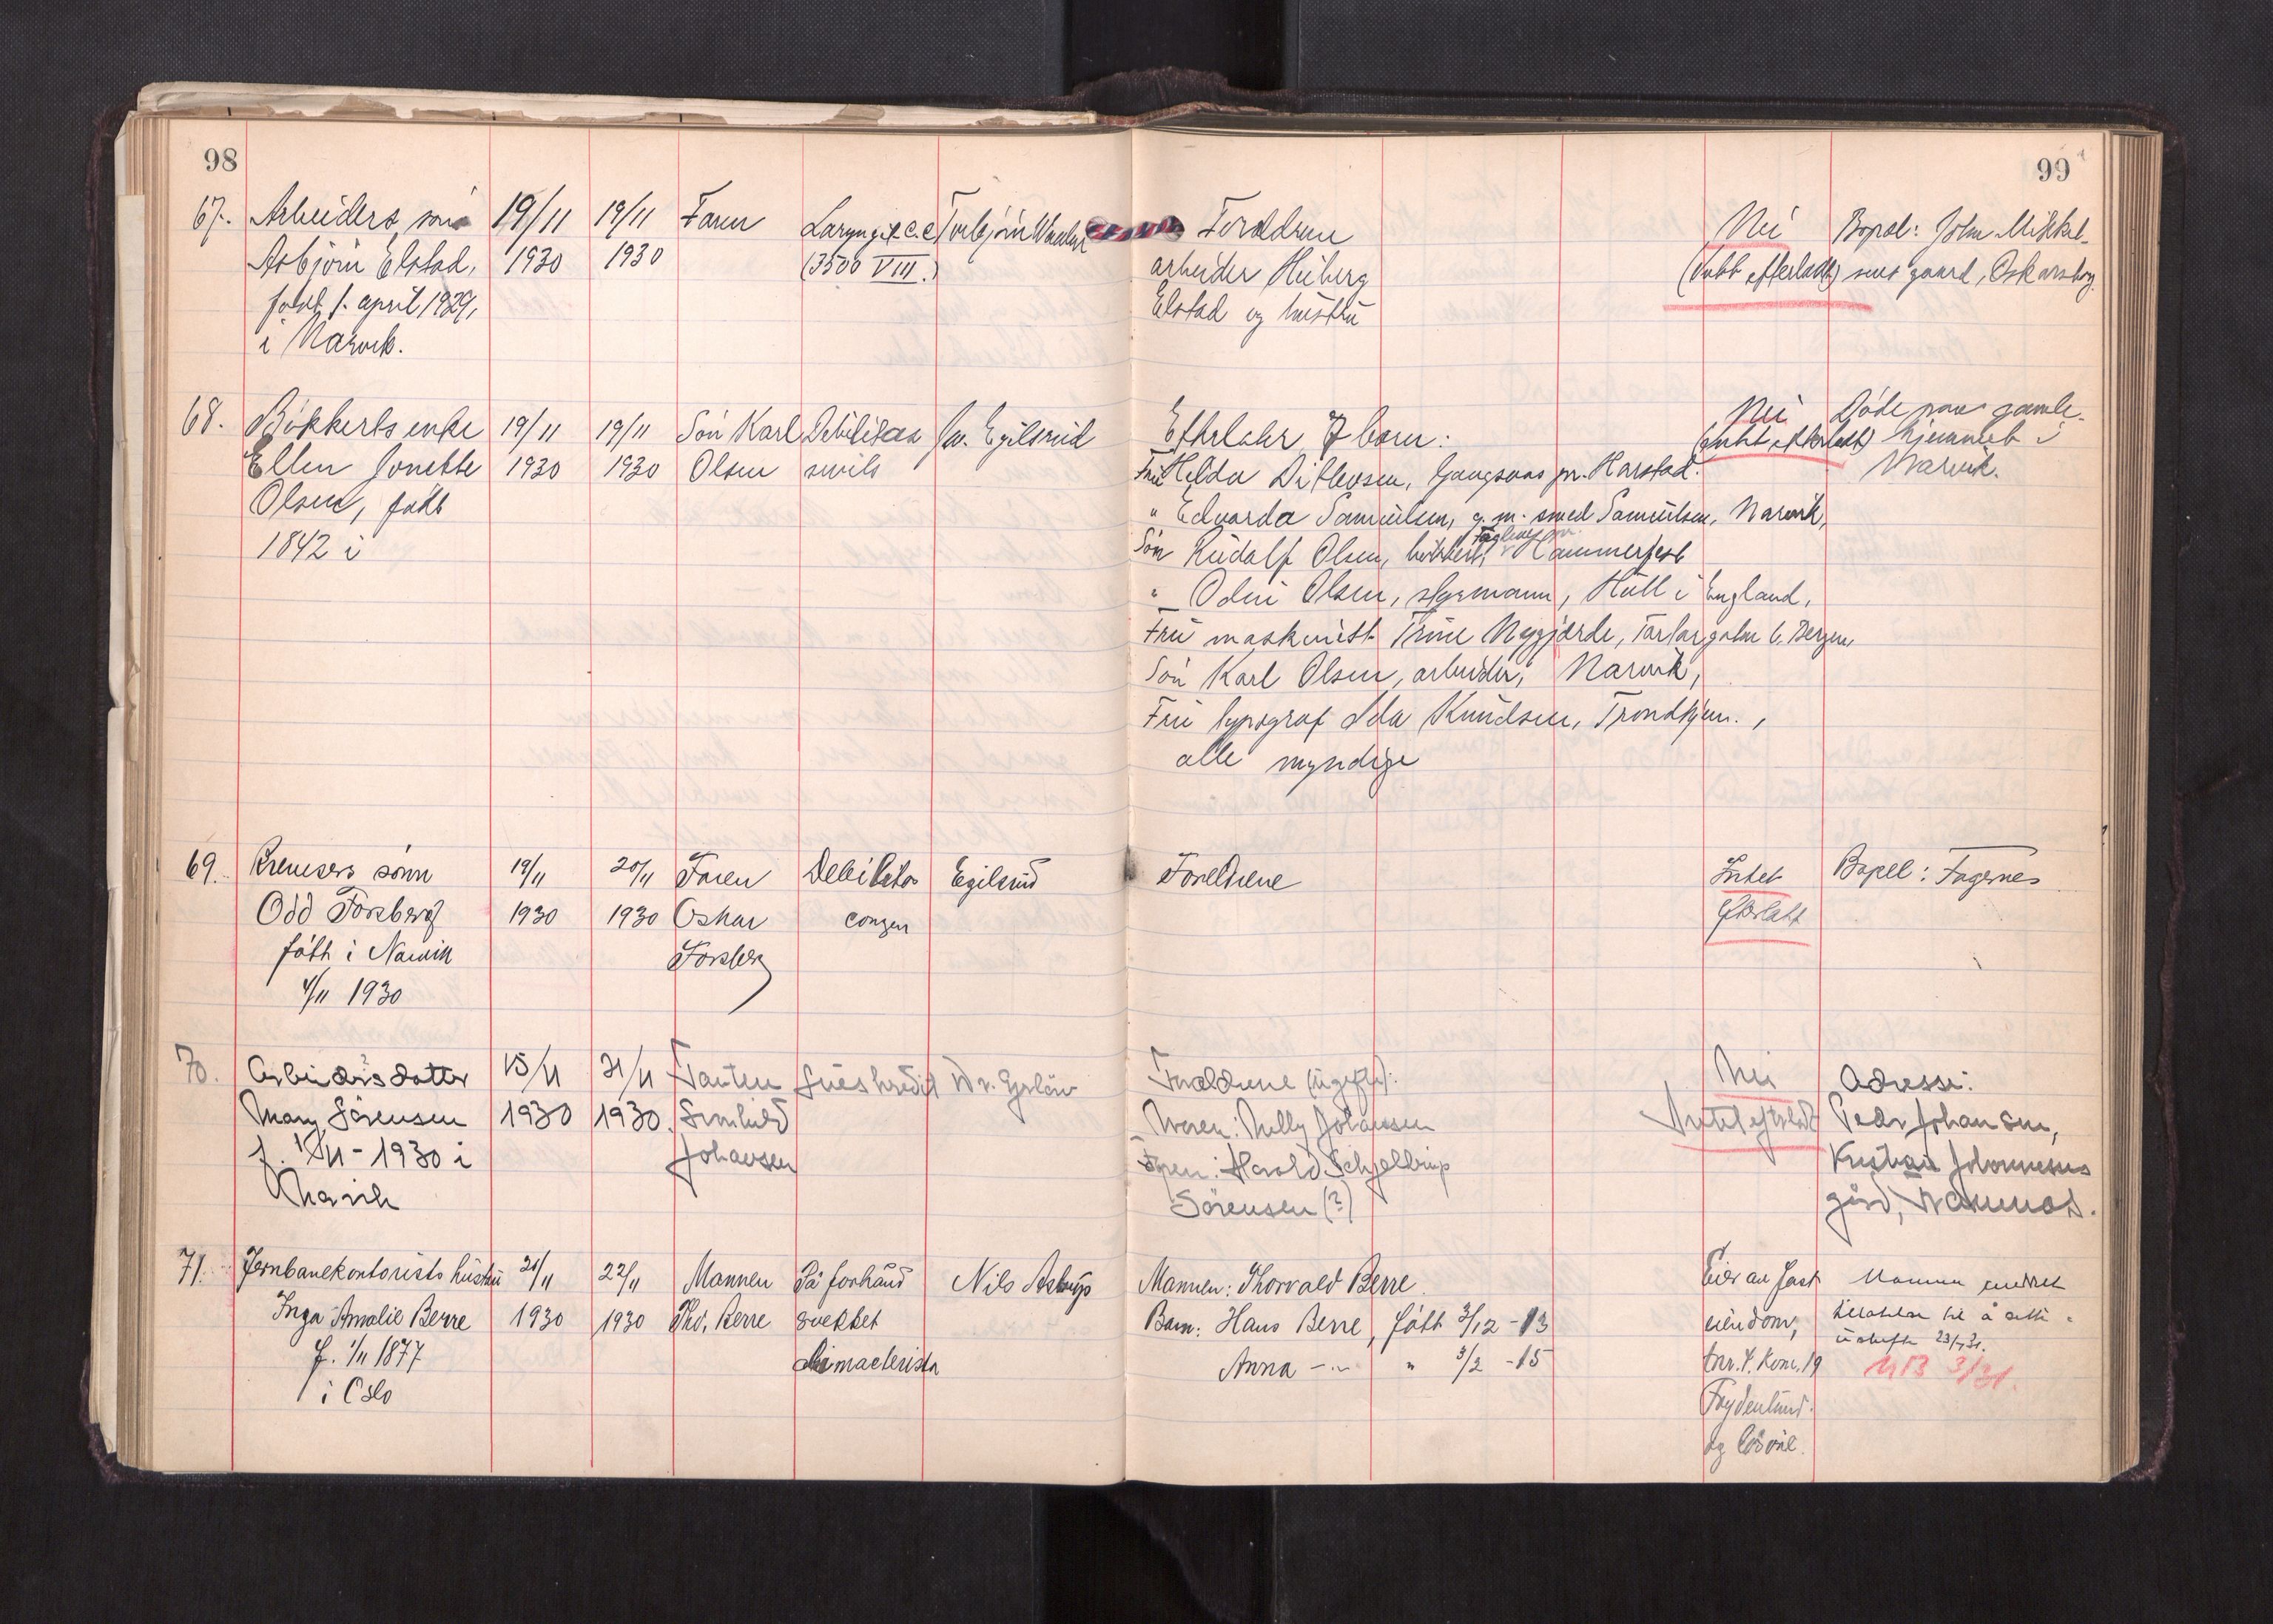 98
99
67. Arbeiders, sön 19/11 19/11 Faren Torbjörn Foreldrene Nei Bopæl: John Mikkel-
Asbjörn Elstad, 1930 1930 (3500 VIII.) arbeider Heiberg (intet efterladt) sens gaard, Oskarsborg
födt 1. april 1929, Elstad og hustru
i Narvik.
68. Bökkerts enke 19/11 19/11 Sön Karl Debilitas fru Egilsrud Efterlater 7 barn: Nei Döde paa gamle-
Ellen Jonette 1930 1930 Olsen senilis Fru Helda Ditlevsen, Gangsaas pr. Harstad. (intet efterladt) hjemmet i
Olsen, födt " Edvarda Samuelsen, g. m. smed Samuelsen, Narvik, Narvik.
1842 i Sön Rudolf Olsen, Hammerfest
" Odin Olsen, styrmann, Hull i England,
Fru maskinist Trine Nygjerde, b. Bergen,
Sön Karl Olsen, arbeider, Narvik,
Fru typograf Ida Knudsen, Trondhjem.,
alle myndige
69. sönn 19/11 20/11 Faren Debilitas Egilsrud Foreldrene Intet Bopel: Fagernes
Odd Forsberg 1930 1930 Oskar congen efterlatt
født i Narvik Forsberg
4/11 1930
70. Arbeidersdatter 15/11 21/11 Tanten Dr. Foreldrene (ugifte): Nei Adresse:
Mary Sörensen 1930 1930. Johansen Moren: Nelly Johansen Intet efterlatt Peder Johansen,
f. 1/11-1930 i Faren: Harold Schjeltrup Kristian Johannesens
Narvik Sörensen (?) gård,
71. Jernbanekontorists hustru 21/11 22/11 Mannen På forhånd Nils Astrup Mannen: Thorvald Berre. Eier av fast Mannen
Inga Amalie Berre 1930 1930 Thv. Berre svekket Barn: Hans Berre, født 3/12 -13 eiendom, til å sitte i
f. 1/11 1877 Anna -"- " 3/2 -15 tnr. 4. Kom. 19 uskifte 23/1 31.
i Oslo Frydenlund. NB 3/31.
og lösöre.